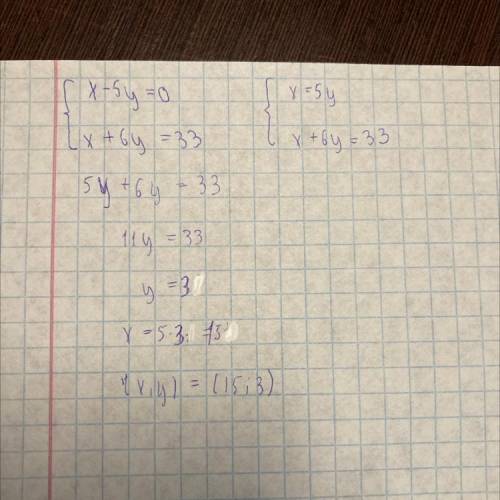 x - 5y = 0
x + 6y = 33
x = 5y
x + 6y = 33
5y + 6y = 33
11y = 33
y = 3
x = 5·3
(x; y) = (15; 3)